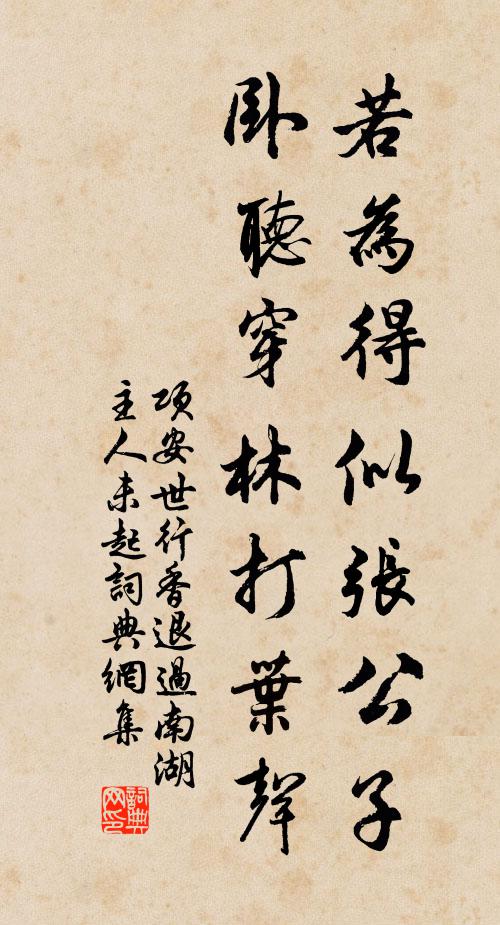 若為得似張公子
臥聽穿林打葉聲
項安世行香退過南湖
主人未起詞典網集
詞典網印